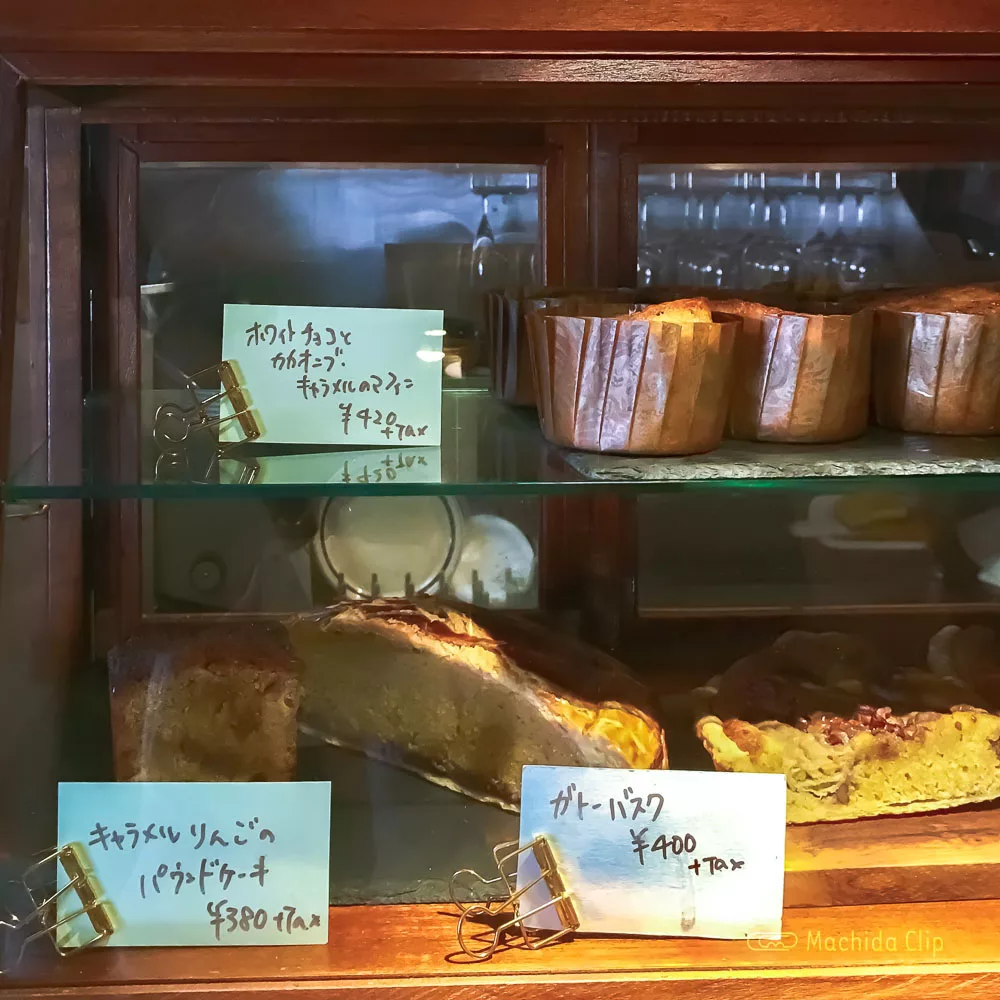 ホワイトチョコと
カカオニブ、
キャラメルのマフィン
¥420
+Tax
キャラメルりんごの
パウンドケーキ
¥380+Tax
ガトーバスク
¥400
+Tax
Machida Clip